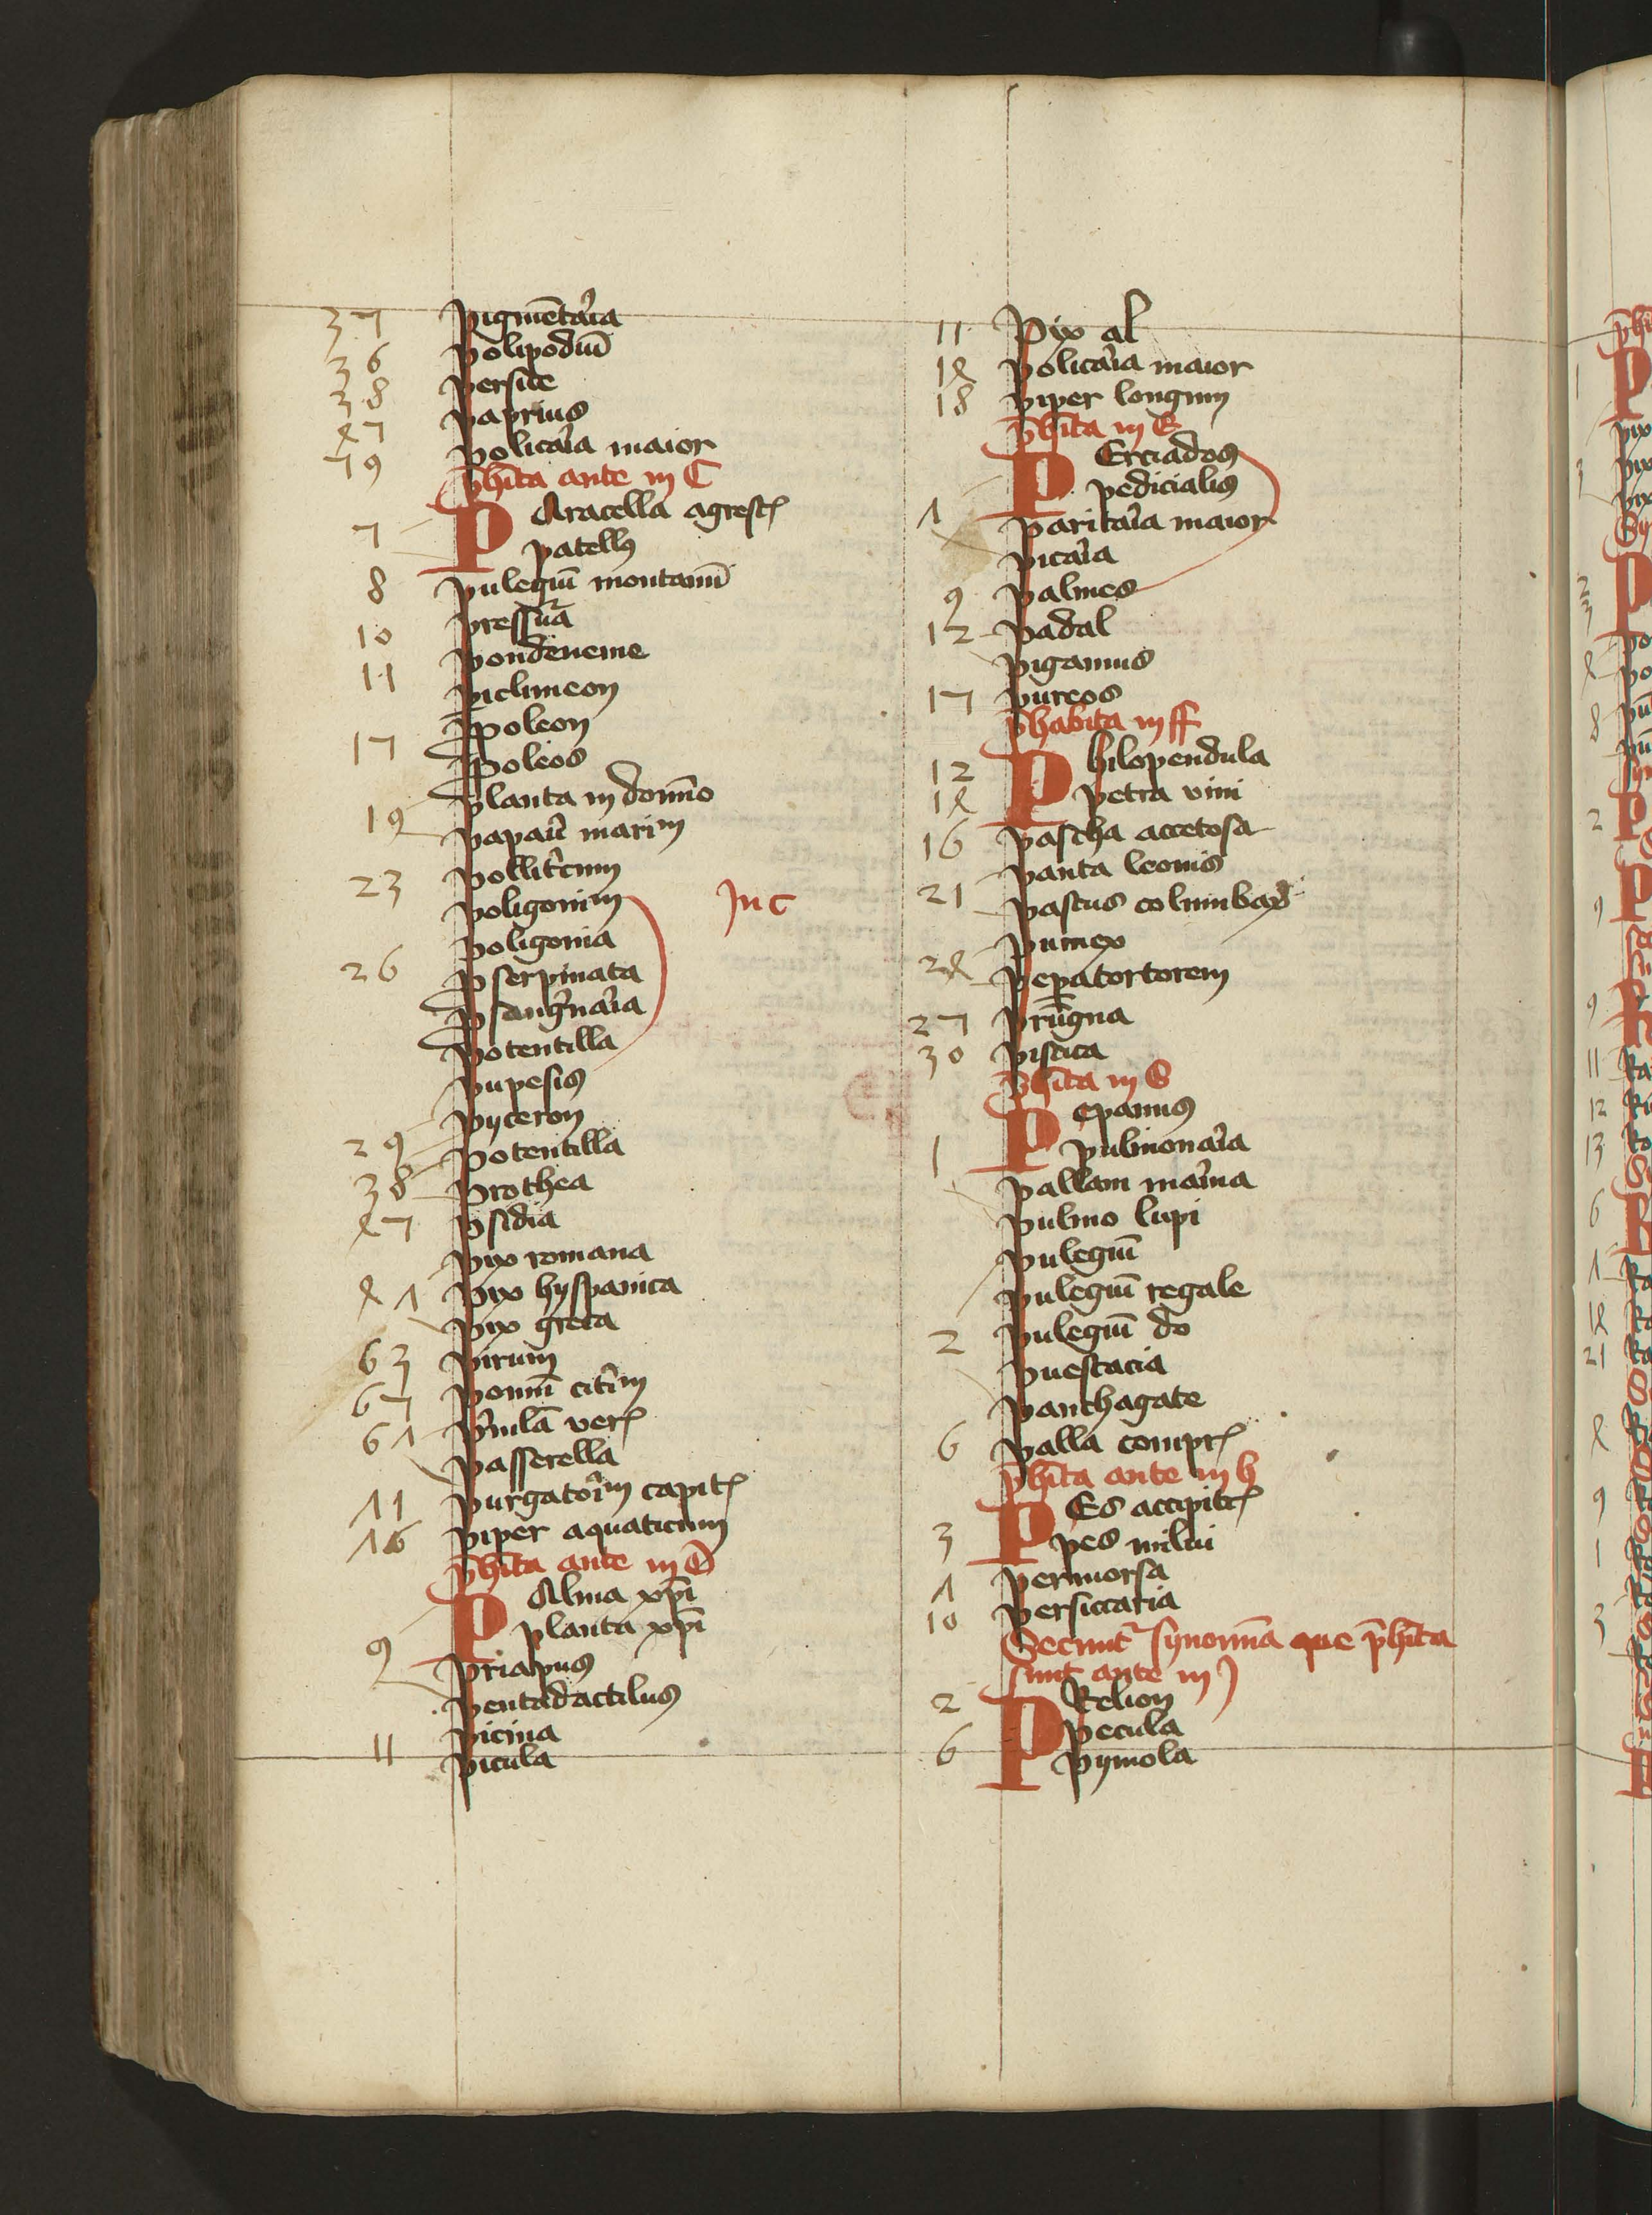 37 Pigmētaria
36 polipodiū
38 persice
47 paprius
79 policaria maior
p̄hīta ante in C
7 P Aracella agrest
patell9
8 pulegiū montanū
pressura
10 pondeneme
11 piclimeon
poleon
17 poleos
planta in domīo
19 papau marim
23 pollitcum
poligonim In C
poligonia
26 pserpinata
psangnaria
potentilla
pupesis
pyceron
29 potentilla
38 prothea
47 psidia
pix romana
41 pix hyspanica
pix greca
63 pirum
67 pomū citim
61 pmulā ver
passerella
11 purgatorim capit
16 piper aquaticum
p̄hīta ante in D
P Alma xpī
planta xpī
9 priapus
pentadactilus
picina
11 picula
11 Pix al
14 policaria maior
18 piper longum
p̄hīta in E
P Erciados
pedicialis
1 paritaria maior
picaria
9 palmes
12 padal
pigamus
17 pureos
p̄habita in ff
12 P hilopendula
14 petra vini
16 pascha accetosa
panta leonis
21 pastus columbar
pumex
24 pepatortorem
27 prūgna
30 pistica
p̄hīta in G
P epanus
1 pulmonaria
pallam marina
pulmo lupi
pulegiū
pulegiū regale
2 pulegiū do
puestacia
panthagate
6 palla compr
p̄hīta ante in h
P Es accipit
3 pes milui
1 permorsa
10 persiccaria
Secunt synonīa que p̄hīta
sunt ante in J
2 P Relion
pecula
6 pymola